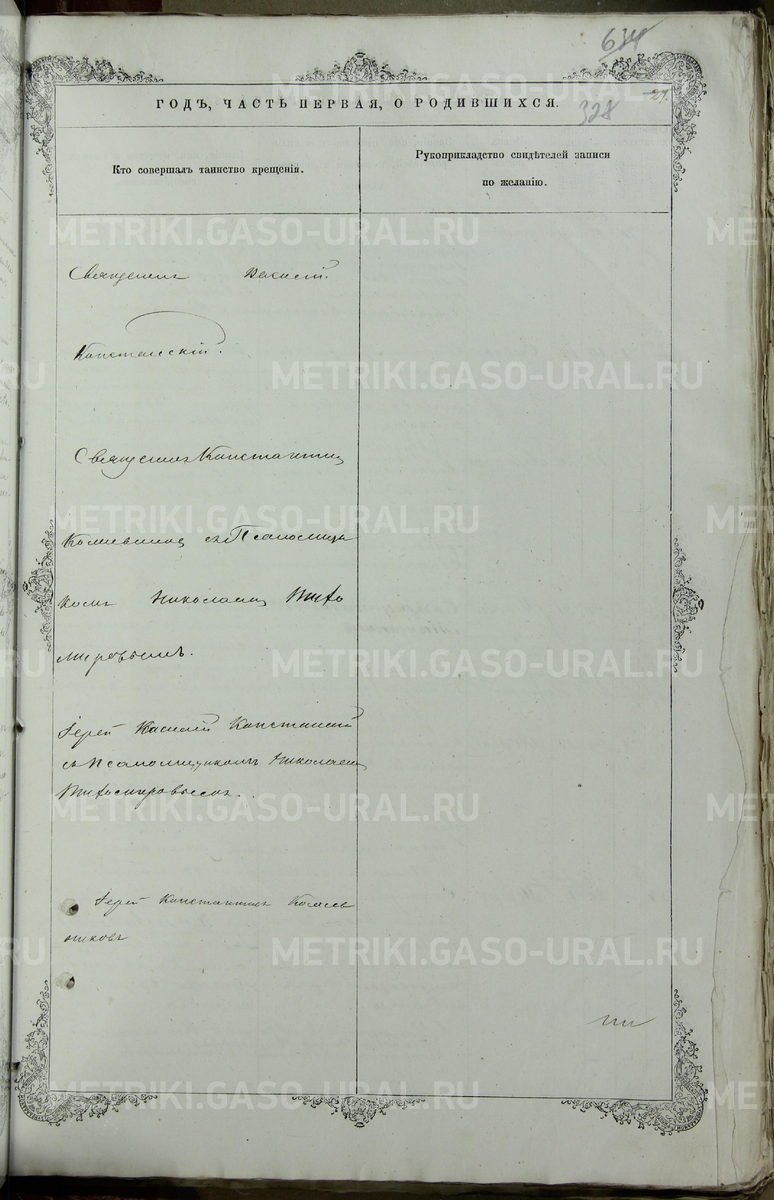 634
27.
328
ГОДЪ, ЧАСТЬ ПЕРВАЯ, О РОДИВШИХСЯ.
Кто совершалъ таинство крещенія.
Рукоприкладство свидѣтелей записи
по желанію.
Священникъ Василій
Констанскій.
Священникъ Константинъ
съ Псаломщи
комъ Николаемъ Тихо
мировымъ.
Іерей Василій Констанскій
съ Псаломщикомъ Николаемъ
Тихомировымъ.
Іерей Константинъ
никовъ
METRIKI.GASO-URAL.RU